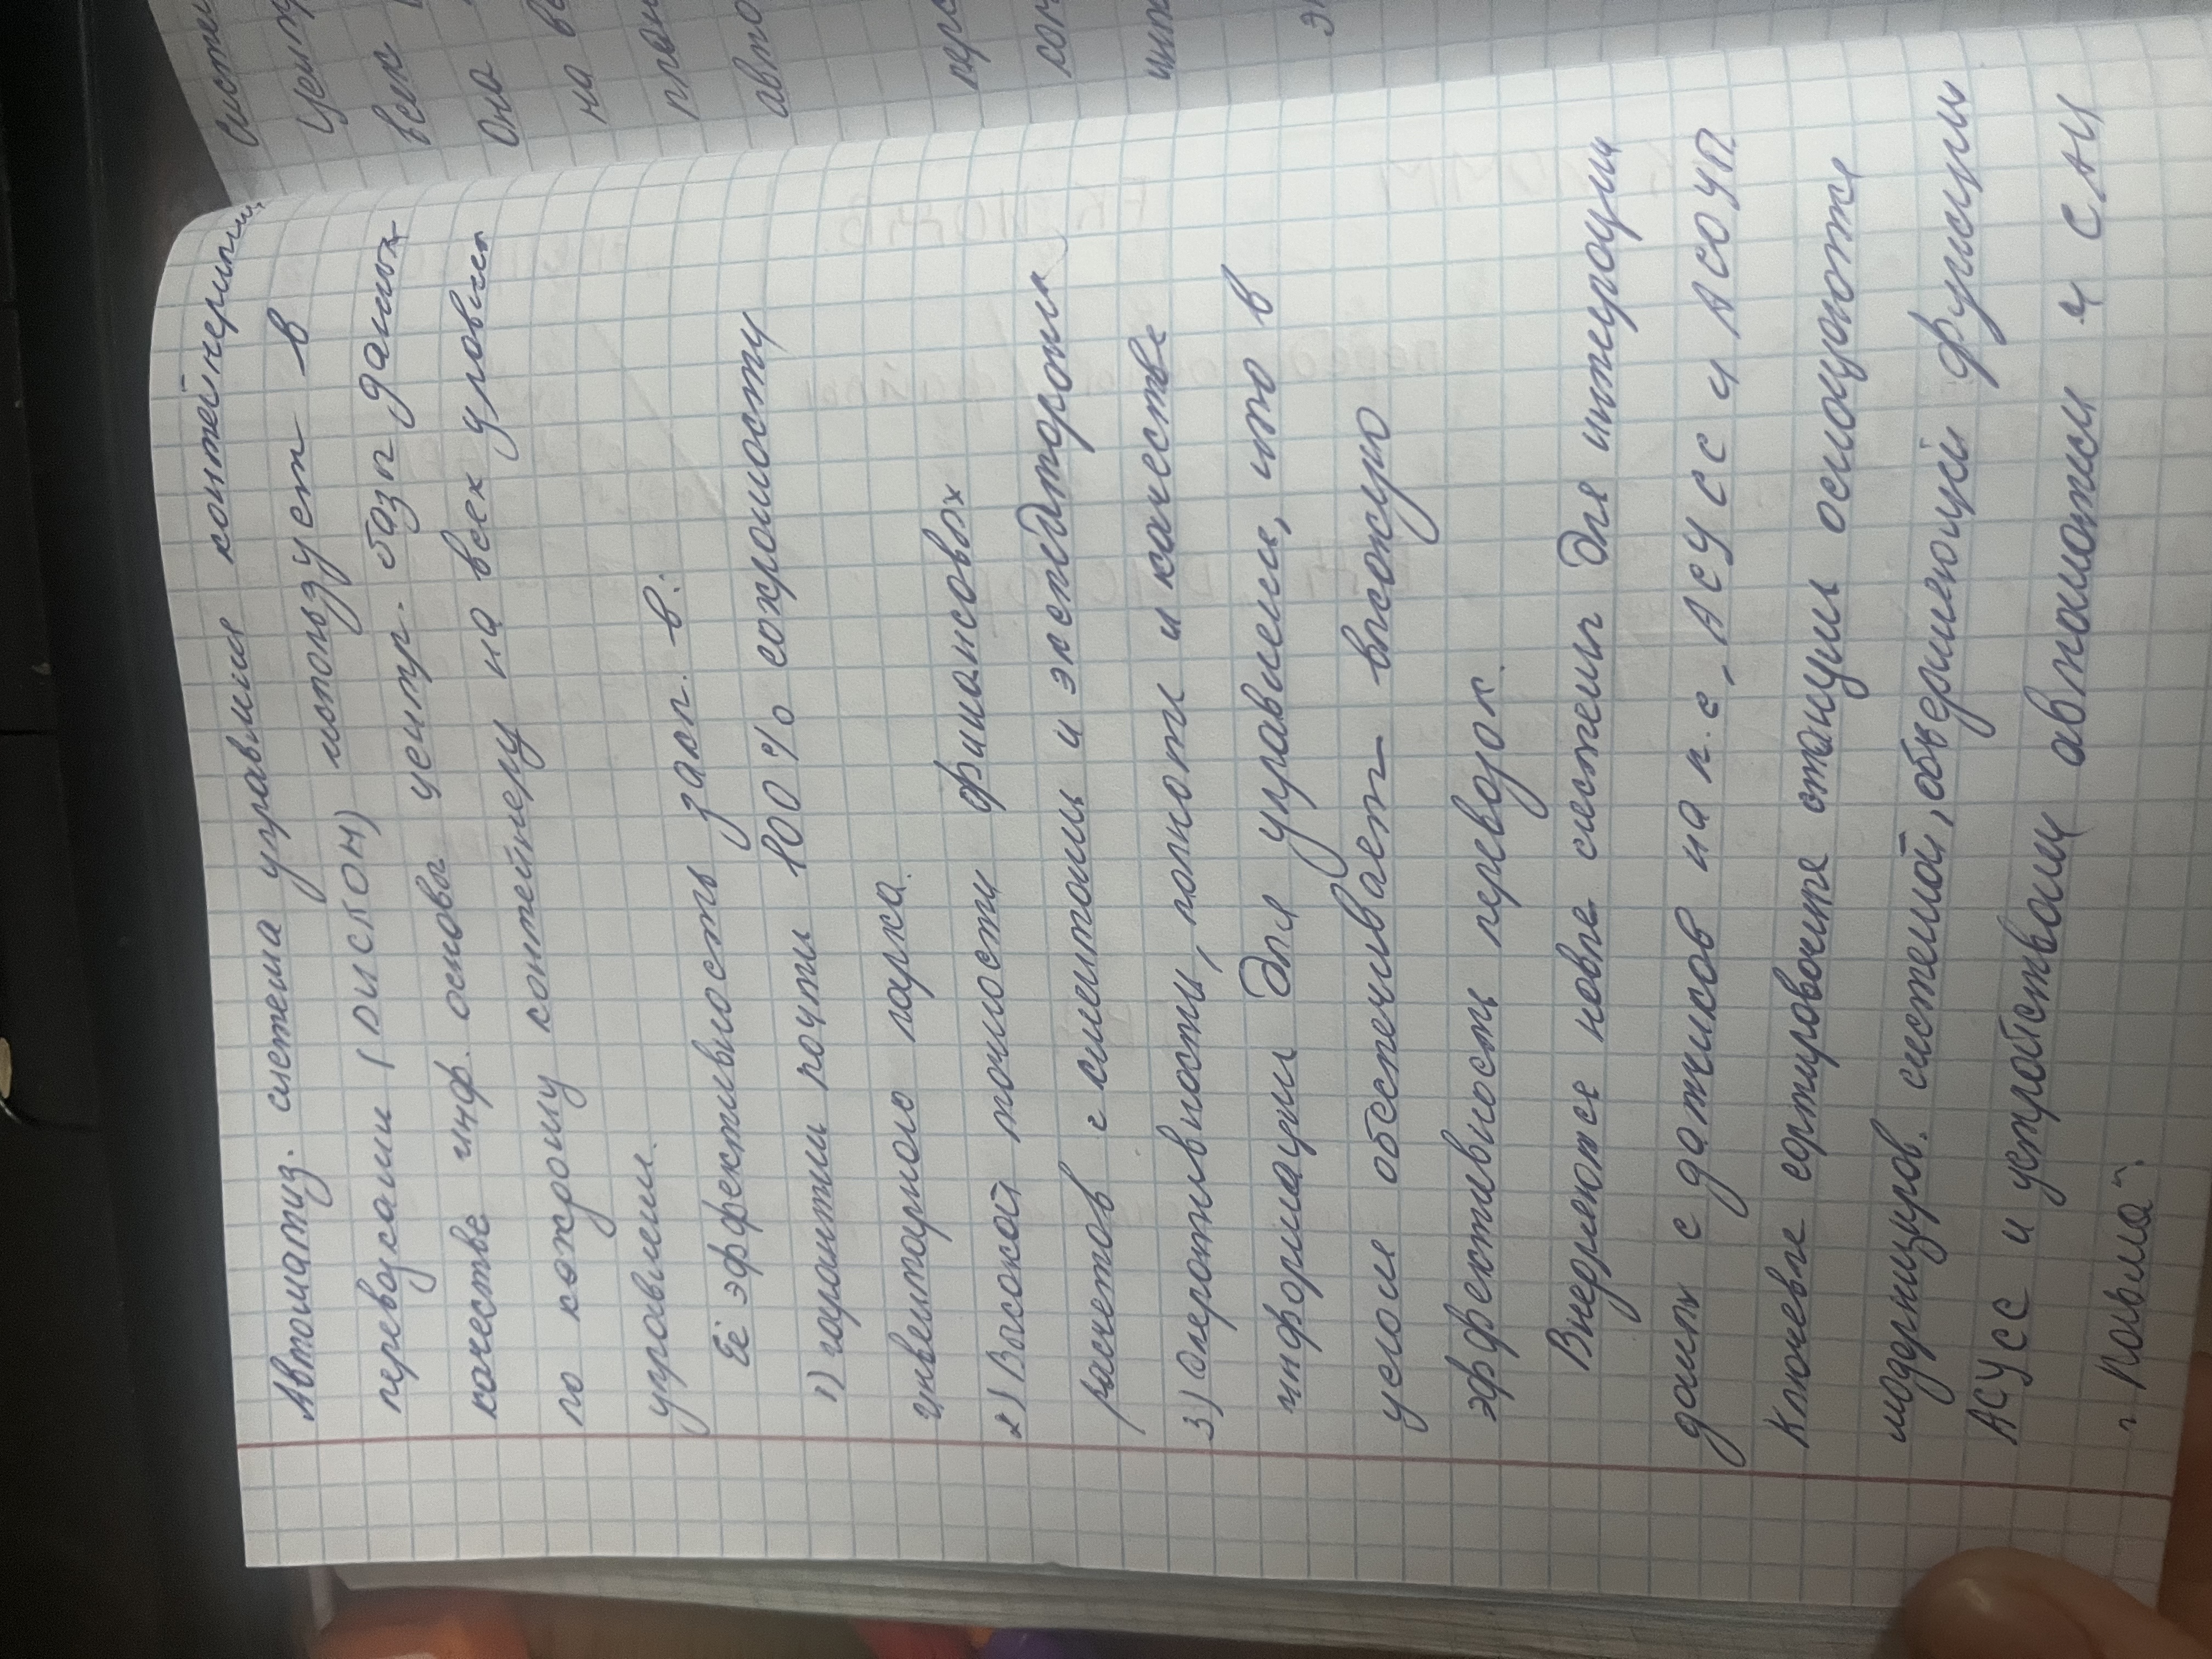 Автоматиз. система управления контейнерными
перевозками (ДИСКОН) использует в
качестве инф. основы центр. базы данных
по каждому контейнеру на всех уровнях
управления.
Её эффективность закл. в:
1) гарантии почти 100% сохранности
инвентарного парка.
2) Высокой точности финансовых
расчетов с клиентами и экспедиторами
3) Оперативности, полноты и качестве
информации для управления, что в
целом обеспечивает высокую
эффективность перевозок.
Внедряются новые системы для интеграции
данных с датчиков на п.с., АСУ СС и АСОУП
Ключевые сортировочные станции оснащаются
модернизиров. системой, объединяющей функции
АСУСС и устройствами автоматики и САИ
"Пальма".
систем
центр
всех
Она
на в
план
авто
пере
сон
шта
Эк